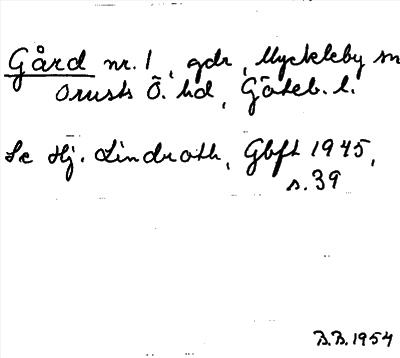 Gård nr. 1, gdr, Myckleby sn
Orusts Ö. hd, Göteb. l.
Se Hj. Lindroth, Gbft 1945,
s. 39
B.B. 1954